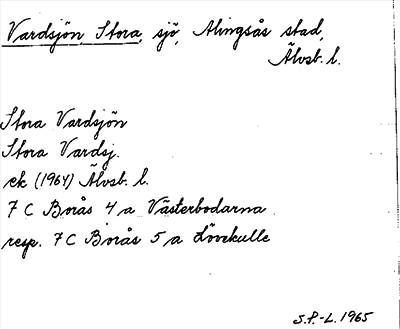 Vardsjön, Stora, sjö, Alingsås stad,
Älvsb. l.
Stora Vardsjön
Stora Vardsj.
ek (1964) Älvsb. l.
7 C Borås 4 a Västerbodarna
resp. 7 C Borås 5 a Lövekulle
S.P.-L. 1965